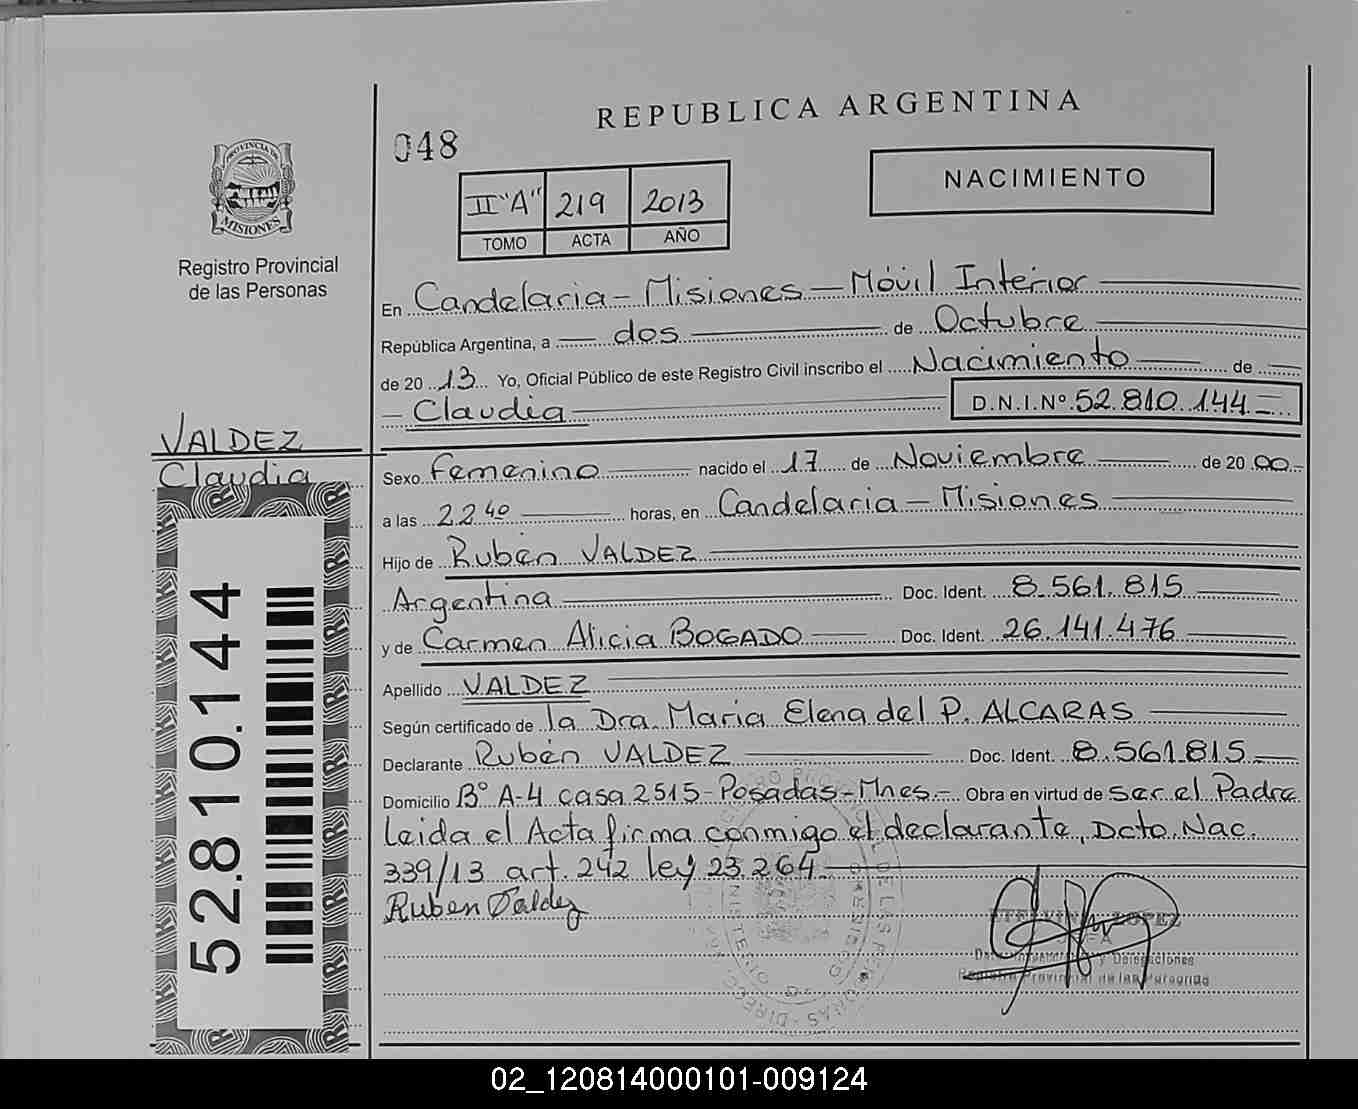 REPUBLICA ARGENTINA
048
NACIMIENTO
II "A" 219 2013
TOMO ACTA AÑO
PROVINCIA DE
MISIONES
Registro Provincial
de las Personas
En Candelaria - Misiones - Móvil Interior
República Argentina, a dos de Octubre
de 2013 Yo, Oficial Público de este Registro Civil inscribo el Nacimiento de
Claudia D.N.I.Nº 52.810.144
VALDEZ
Claudia
Sexo Femenino nacido el 17 de Noviembre de 2000
a las 22 40 horas, en Candelaria - Misiones
Hijo de Rubén VALDEZ
Argentina Doc. Ident. 8.561.815
y de Carmen Alicia BOGADO Doc. Ident. 26.141.476
Apellido VALDEZ
Según certificado de la Dra. Maria Elena del P. ALCARAS
Declarante Rubén VALDEZ Doc. Ident. 8.561.815
Domicilio Bº A-4 casa 2515 - Posadas - Mnes. - Obra en virtud de ser el Padre
Leida el Acta firma conmigo el declarante, Dcto. Nac.
339/13 art. 242 ley 23.264
Ruben Valdez
52.810.144
LOPEZ
02_120814000101-009124